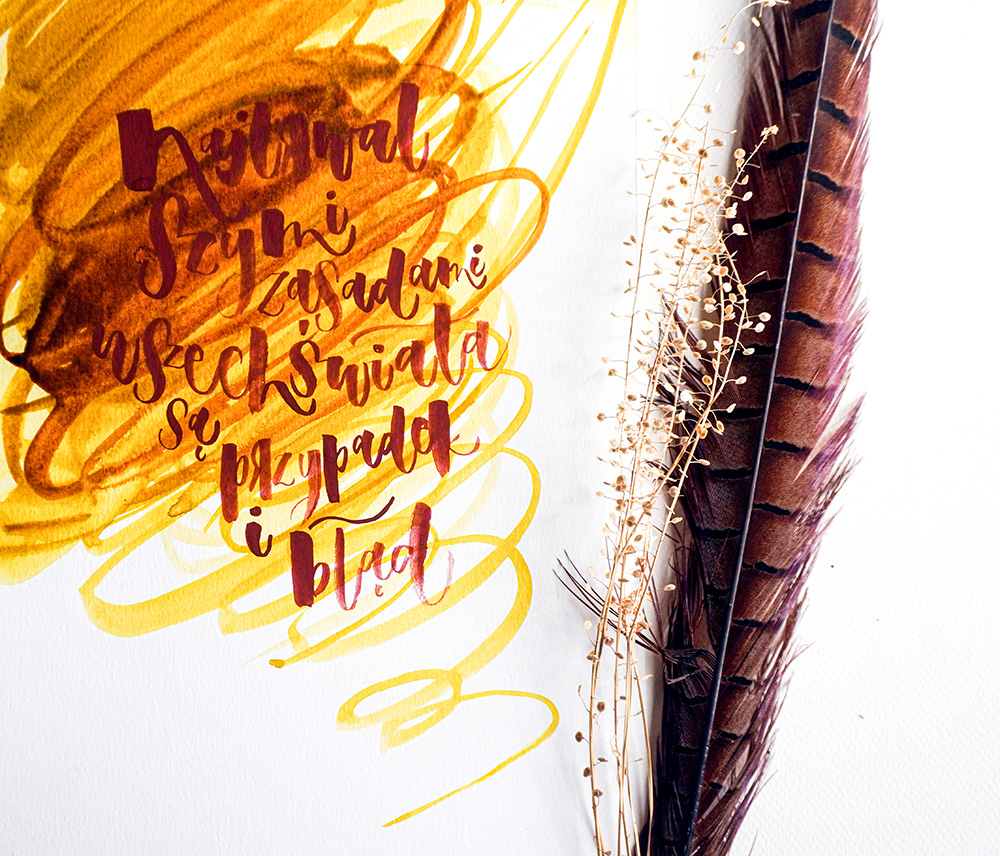 najtrwal
szymi
zasadami
wszechświata
są
przypadek
i
błąd